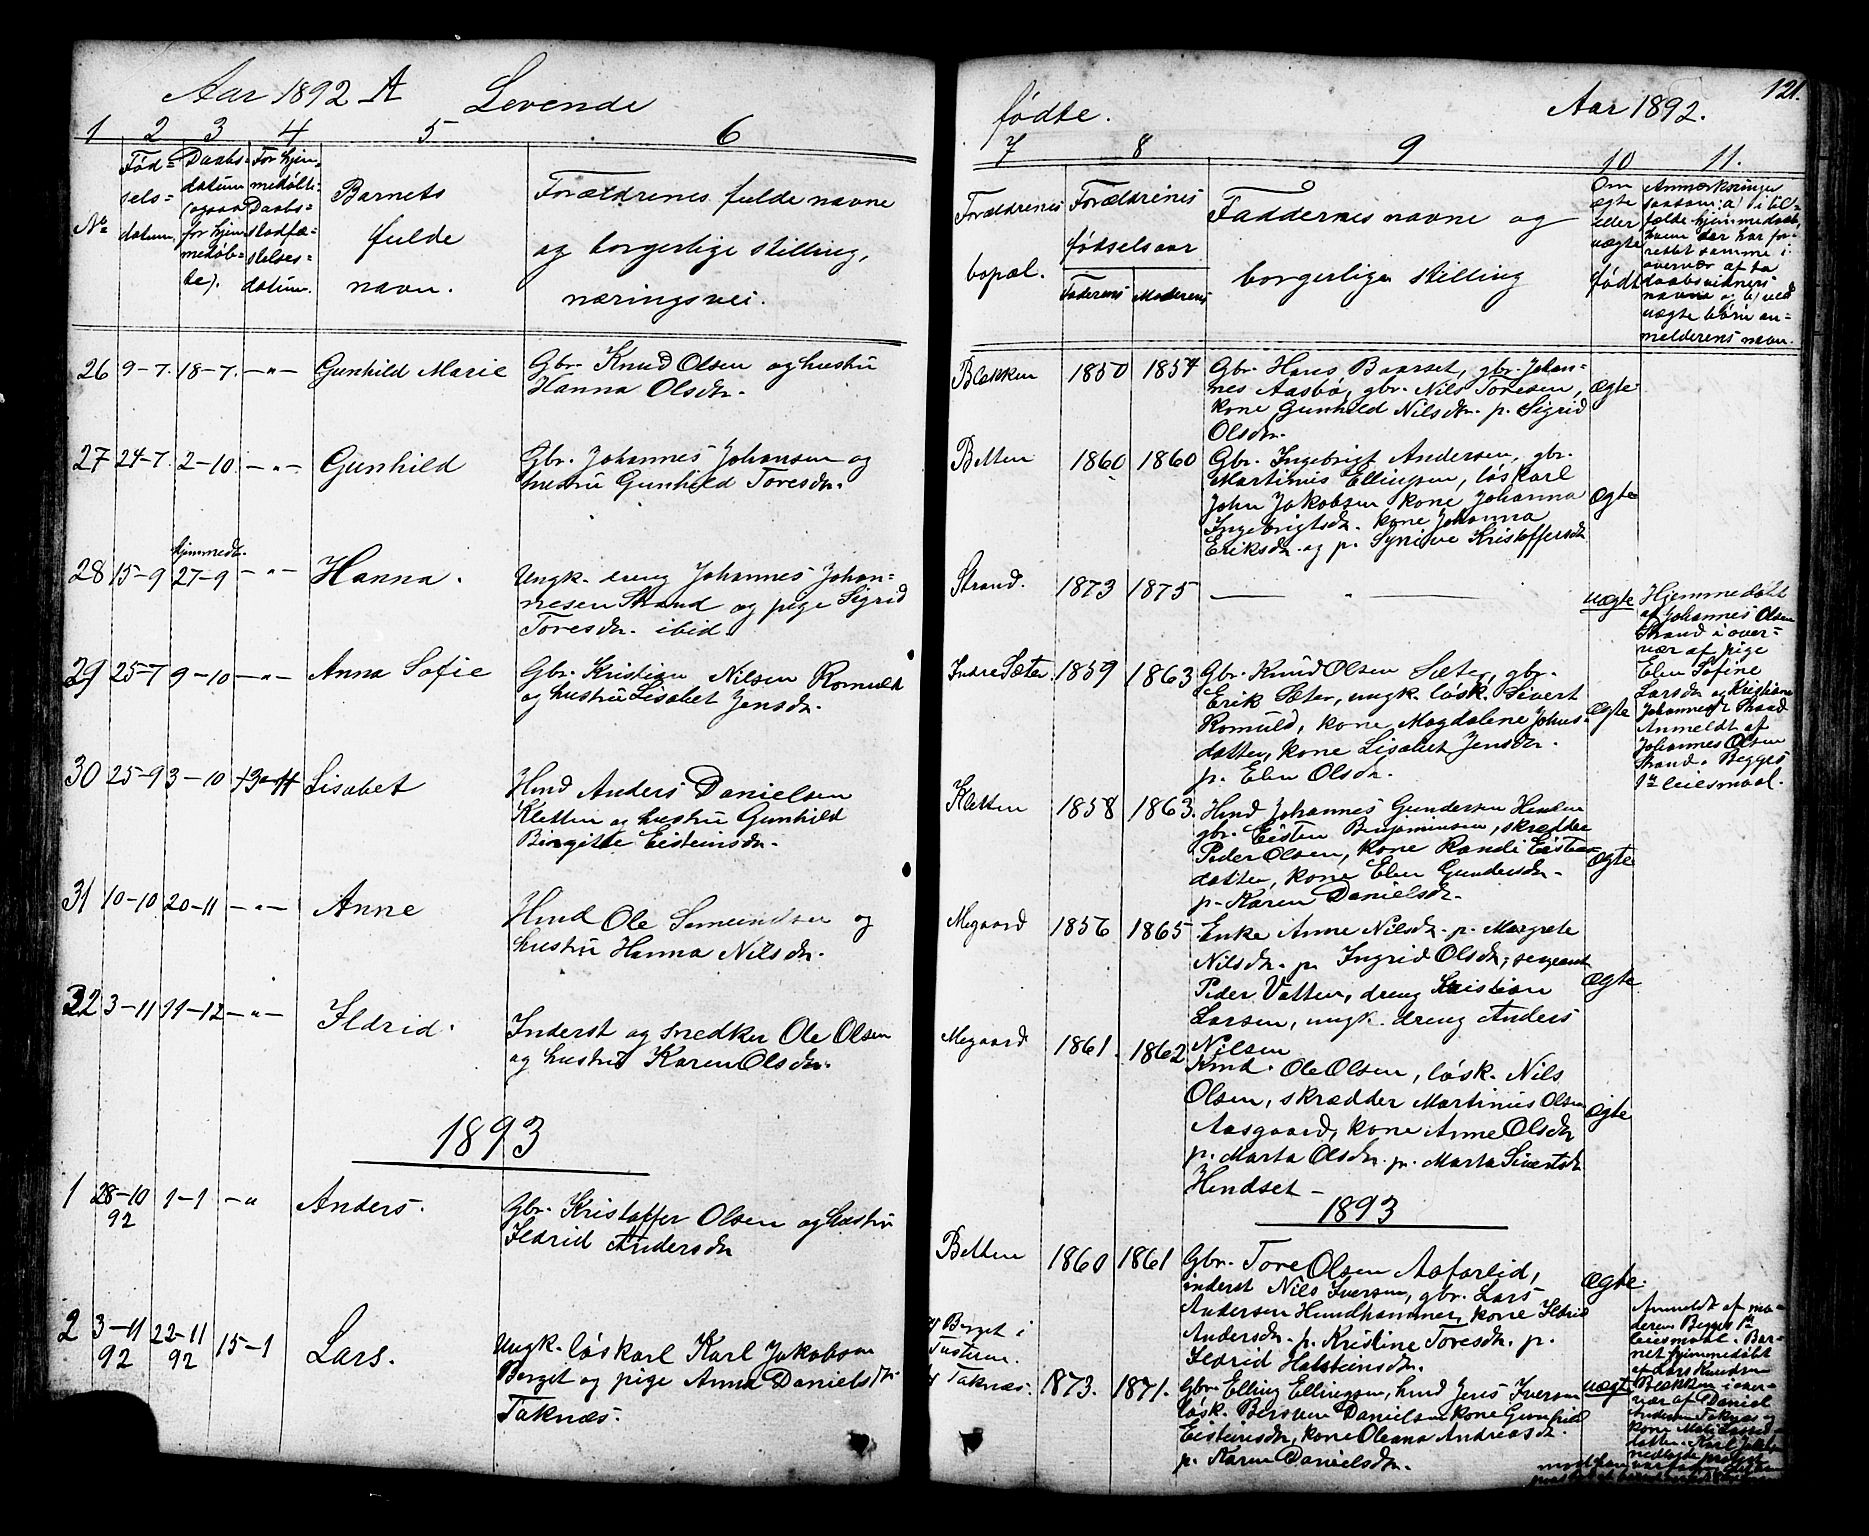 Aar 1892 A Levende
1 2 3 4 5 6
No
Fød=
sels=
datum.
Daabs-
datum
(ogsaa
for hjem
medøb=
te).
For hjem
medøbte:
Daabs=
stadfæ=
stelses=
datum.
Barnets
fulde
navn.
Forældrenes fulde navne
og borgerlige stilling,
næringsvei.
26 9-7. 18-7. -"- Gunhild Marie
Gbr. Knud Olsen og hustru
Hanna Olsdr.
27 24-7. 2-10. -"- Gunhild
Gbr. Johannes Johansen og
hustru Gunhild Toresdr.
hjemmedt.
28 15-9 27-9 -"- Hanna.
Ungk. dreng Johannes Johan=
nesen Strand og pige Sigrid
Toresdr. ibid.
29 25-7 9-10 -"- Anna Sofie
Gbr. Kristian Nilsen Romuld
og hustru Lisabet Jensdr.
30 25-9 3-10 13-11 Lisabet
Hmd Anders Danielsen
Kletten og hustru Gunhild
Birgitte Eisteinsdr.
31 10-10 20-11 -"- Anne
Hmd Ole Semundsen og
hustru Hanna Nilsdr.
32 3-11 11-12 -"- Ildrid.
Inderst og snedker Ole Olsen
og hustru Karen Olsdr.
1893
1 28-10 92 1-1 -" Anders.
Gbr. Kristoffer Olsen og hustru
Ildrid Andersdr
2 3-11 92 22-11 92 15-1 Lars.
Ungk. løskarl Karl Jakobsen
Berget og pige Anna Danielsdtr
Taknæs.
fødte. Aar 1892. 121.
7 8 9 10 11.
Forældrenes
bopæl.
Forældrenes
fødselsaar
Faderens Moderens
Faddernes navne og
borgerlige stilling
Om
ægte
eller
uægte
født
Anmærkninger
saasom: a) i til-
fælde hjemmedaab,
hvem der har for-
rettet samme i
overvær af to
daabsvidners
navne og b) ved
uægte børn an-
melderens navn.
Blekken 1850 1854
Gbr. Hans Baarset, gbr. Johan=
nes Aasbø, gbr. Nils Toresen,
kone Gunhild Nilsdr. p. Sigrid
Olsdr.
Ægte
Betten 1860 1860
Gbr. Ingebrigt Andersen, gbr.
Martinus Ellingsen, løskarl
John Jakobsen, kone Johanna
Ingebrigtsdr. kone Johanna
Eriksdr. og p. Synive Kristoffersdr
Ægte
Strand. 1873 1875 - " -
uægte
Hjemmedøbt
af Johannes Olsen
Strand i over-
vær af pige
Elen Sofine
Larsdr og Kristiane
Johannesdr Strand
Anmeldt af
Johannes Olsen
Strand. Begges
1te leiesmaal.
Indre Sæter. 1859 1863
Gbr. Knud Olsen Sæter, gbr.
Erik Sæter, ungk. løsk. Sivert
Romuld, kone Magdalene Johns=
datter, kone Lisabet Jensdr.
p. Elen Olsdr.
Ægte
Kletten 1858 1863.
Hmd Johannes Gundersen Henden
gbr. Eisten Benjaminsen, skrædder
Peder Olsen, kone Randi Eistens
datter, kone Elen Gundersdr.
p. Karen Danielsdr.
Ægte
Megaard 1856 1865
Enke Anne Nilsdr. p. Margrete
Nilsdr. p. Ingrid Olsdr, sergeant
Peder Vatten, dreng Kristian
Larsen, ungk. dreng Anders
Nilsen
Ægte
Megaard 1861. 1862
Kmd. Ole Olsen, løsk. Nils
Olsen, skrædder Martinus Olsen
Aasgaard, kone Anne Olsdr
p. Marta Olsdr. p. Marta Sivertsdr
Hendset -
Ægte
1893
Betten 1860 1861
Gbr. Tore Olsen Aafarlid,
inderst Nils Iversen, gbr. Lars
Andersen Hundhammer, kone Ildrid
Andersdr. p. Kristine Toresdr. p.
Ildrid Halsteinsdr.
Ægte.
Berget i
Tusteren.
Taknæs. 1873. 1871.
Gbr. Elling Ellingsen, hmd Jens Iversen
løsk. Bersven Danielsen kone Gunhild
Eisteinsdr, kone Oleana Andreasdr.
p. Karen Danielsdr.
uægte
Anmeldt af mo-
deren. Begges 1te
leiesmaal. Bar-
net hjemmedøbt
af Lars Knudsen
Blekken i over-
vær af Daniel
Andersen Taknæs og
kone
datter. Karl
nedlagde protest
mod